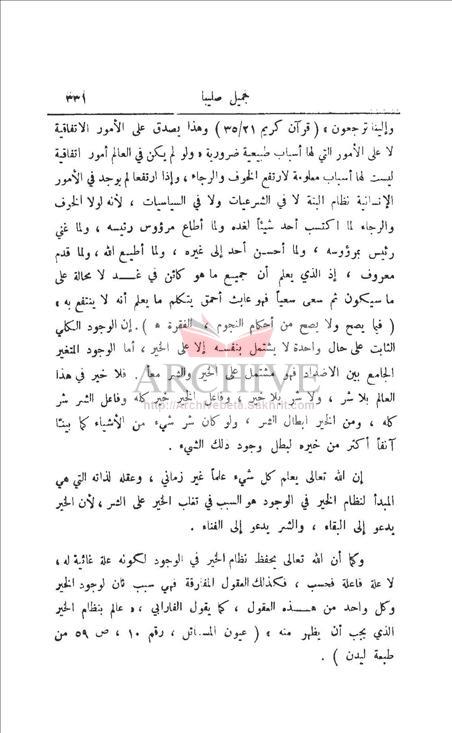 جميل صليبا ٣٣١
وإلينا ترجعون » ( قرآن كريم ٣٥/٢١ ) وهذا يصدق على الأمور الاتفاقية
لا على الأمور التي لها أسباب طبيعية ضرورية « ولو لم يكن في العالم أمور اتفاقية
ليست لها أسباب معلومة لارتفع الخوف والرجاء ، وإذا ارتفعا لم يوجد في الأمور
الإنسانية نظام البتة لا في الشرعيات ولا في السياسيات ، لأنه لولا الخوف
والرجاء لما اكتسب أحد شيئاً لغده ولما أطاع مرؤوس رئيسه ، ولما عني
رئيس بمرؤوسه ، ولما أحسن أحد إلى غيره ، ولما أطيع الله ، ولما قدم
معروف ، إذ الذي يعلم أن جميع ما هو كائن في غد لا محالة على
ما سيكون ثم سعى سعياً فهو عابث أحمق يتكلم ما يعلم أنه لا ينتفع به »
( فيما يصح ولا يصح من أحكام النجوم ، الفقرة ٥ ) . إن الوجود الكلي
الثابت على حال واحدة لا يشتمل بنفسه إلا على الخير ، أما الوجود المتغير
الجامع بين الأضداد فهو مشتمل على الخير والشر معاً . فلا خير في هذا
العالم بلا شر ، ولا شر بلا خير ، وفاعل الخير خير كله وفاعل الشر شر
كله ، ومن الخير ابطال الشر ، ولو كان شر شيء من الأشياء كما بينّا
آنفاً أكثر من خيره لبطل وجود ذلك الشيء .
إن الله تعالى يعلم كل شيء علماً غير زماني ، وعقله لذاته التي هي
المبدأ لنظام الخير في الوجود هو السبب في تغلب الخير على الشر ، لأن الخير
يدعو إلى البقاء ، والشر يدعو إلى الفناء .
وكما أن الله تعالى يحفظ نظام الخير في الوجود لكونه علة غائية له ،
لا علة فاعلة فحسب ، فكذلك العقول المفارقة فهي سبب ثان لوجود الخير
وكل واحد من هذه العقول ، كما يقول الفارابي ، « عالم بنظام الخير
الذي يجب أن يظهر منه » ( عيون المسائل ، رقم ١٠ ، ص ٥٩ من
طبعة ليدن ) .
ARCHIVE
http://Archivebeta.Sakhrit.com